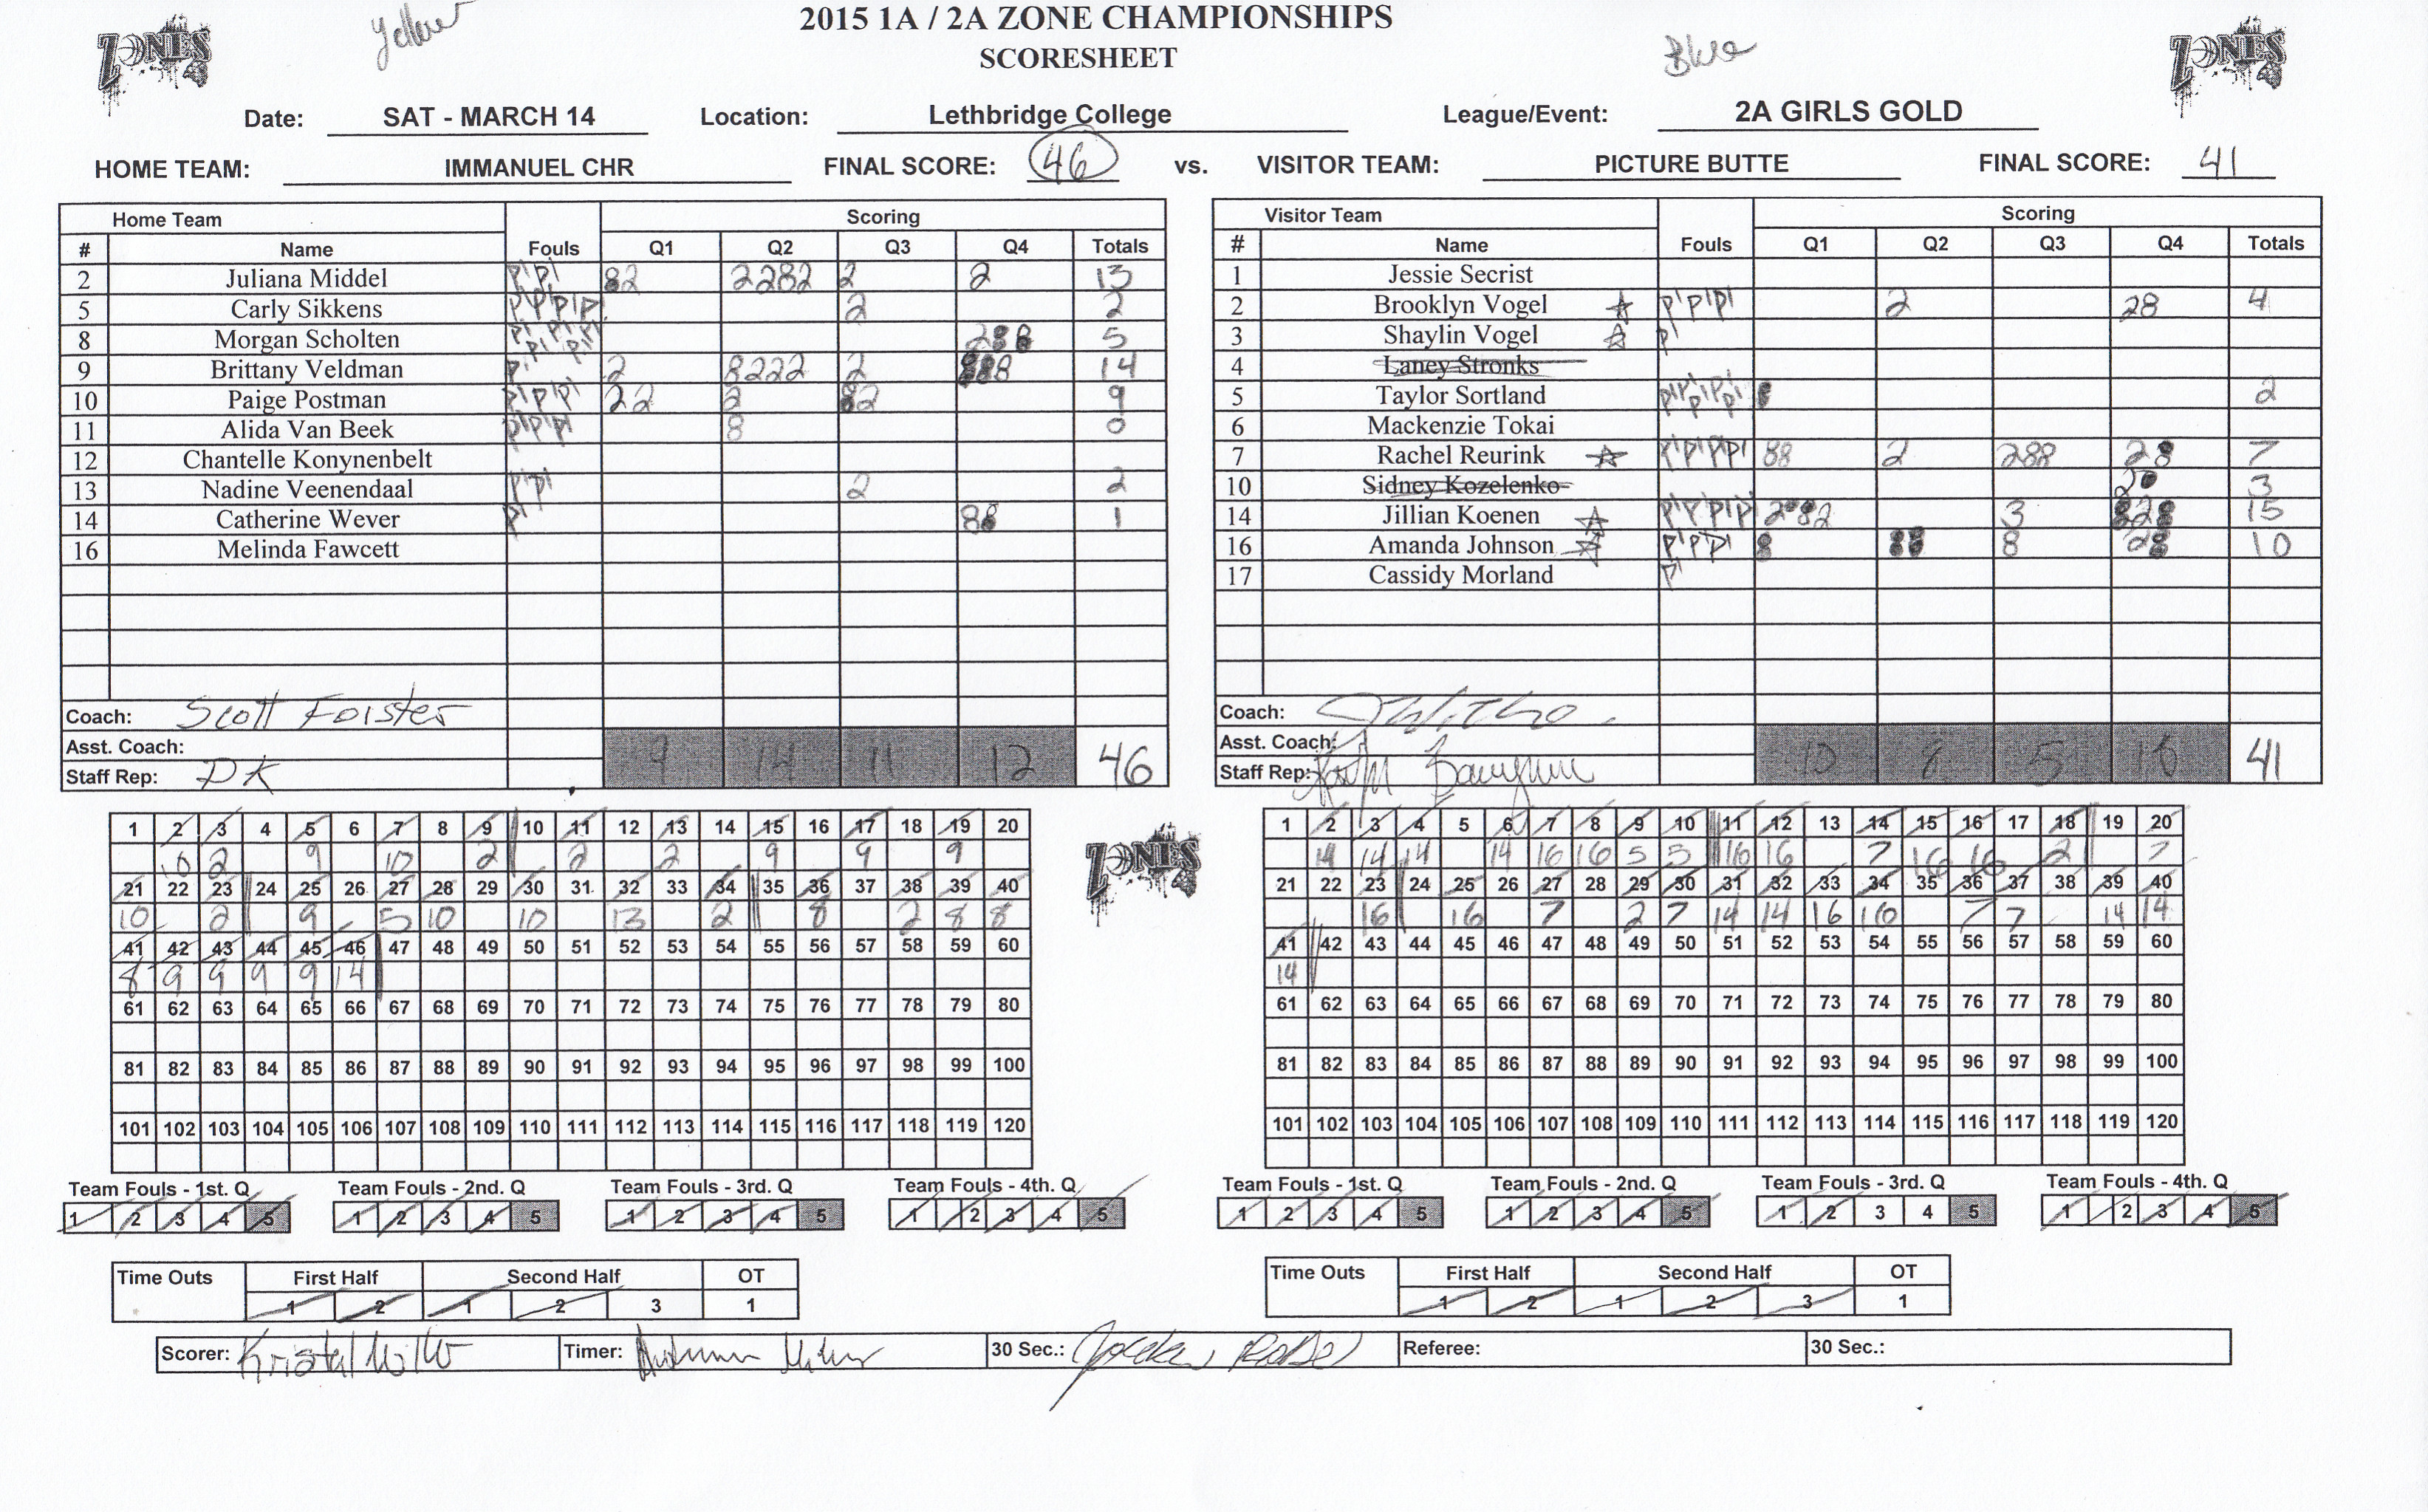 yellow
2015 1A / 2A ZONE CHAMPIONSHIPS
SCORESHEET
Blue
ZONES
ZONES
Date: SAT - MARCH 14 Location: Lethbridge College League/Event: 2A GIRLS GOLD
HOME TEAM: IMMANUEL CHR FINAL SCORE: 46 vs. VISITOR TEAM: PICTURE BUTTE FINAL SCORE: 41
Home Team Scoring
# Name Fouls Q1 Q2 Q3 Q4 Totals
2 Juliana Middel 82 2282 2 2 13
5 Carly Sikkens 2 2
8 Morgan Scholten 288 5
9 Brittany Veldman 2 8222 2 888 14
10 Paige Postman 22 2 82 9
11 Alida Van Beek 8 0
12 Chantelle Konynenbelt
13 Nadine Veenendaal 2 2
14 Catherine Wever 88 1
16 Melinda Fawcett
Coach: Scott Forster
Asst. Coach:
Staff Rep: DK
9 14 11 12 46
Visitor Team Scoring
# Name Fouls Q1 Q2 Q3 Q4 Totals
1 Jessie Secrist
2 Brooklyn Vogel 2 28 4
3 Shaylin Vogel
4 Laney Stronks
5 Taylor Sortland 8 2
6 Mackenzie Tokai
7 Rachel Reurink 88 2 288 28 7
10 Sidney Kozelenko 3
14 Jillian Koenen 3 828 15
16 Amanda Johnson 8 88 8 28 10
17 Cassidy Morland
Coach:
Asst. Coach:
Staff Rep:
10 8 5 41
1 2 3 4 5 6 7 8 9 10 11 12 13 14 15 16 17 18 19 20
10 2 9 10 2 2 2 9 9 9
21 22 23 24 25 26 27 28 29 30 31 32 33 34 35 36 37 38 39 40
10 2 9 5 10 10 13 2 8 2 8 8
41 42 43 44 45 46 47 48 49 50 51 52 53 54 55 56 57 58 59 60
8 9 9 9 9 14
61 62 63 64 65 66 67 68 69 70 71 72 73 74 75 76 77 78 79 80
81 82 83 84 85 86 87 88 89 90 91 92 93 94 95 96 97 98 99 100
101 102 103 104 105 106 107 108 109 110 111 112 113 114 115 116 117 118 119 120
ZONES
1 2 3 4 5 6 7 8 9 10 11 12 13 14 15 16 17 18 19 20
14 14 14 14 16 16 5 5 16 16 7 16 16 2 7
21 22 23 24 25 26 27 28 29 30 31 32 33 34 35 36 37 38 39 40
16 16 7 2 7 14 14 16 16 7 7 14 14
41 42 43 44 45 46 47 48 49 50 51 52 53 54 55 56 57 58 59 60
14
61 62 63 64 65 66 67 68 69 70 71 72 73 74 75 76 77 78 79 80
81 82 83 84 85 86 87 88 89 90 91 92 93 94 95 96 97 98 99 100
101 102 103 104 105 106 107 108 109 110 111 112 113 114 115 116 117 118 119 120
Team Fouls - 1st. Q Team Fouls - 2nd. Q Team Fouls - 3rd. Q Team Fouls - 4th. Q
1 2 3 4 5 1 2 3 4 5 1 2 3 4 5 1 2 3 4 5
Team Fouls - 1st. Q Team Fouls - 2nd. Q Team Fouls - 3rd. Q Team Fouls - 4th. Q
1 2 3 4 5 1 2 3 4 5 1 2 3 4 5 1 2 3 4 5
Time Outs First Half Second Half OT
1 2 1 2 3 1
Time Outs First Half Second Half OT
1 2 1 2 3 1
Scorer: Timer: 30 Sec.: Referee: 30 Sec.: